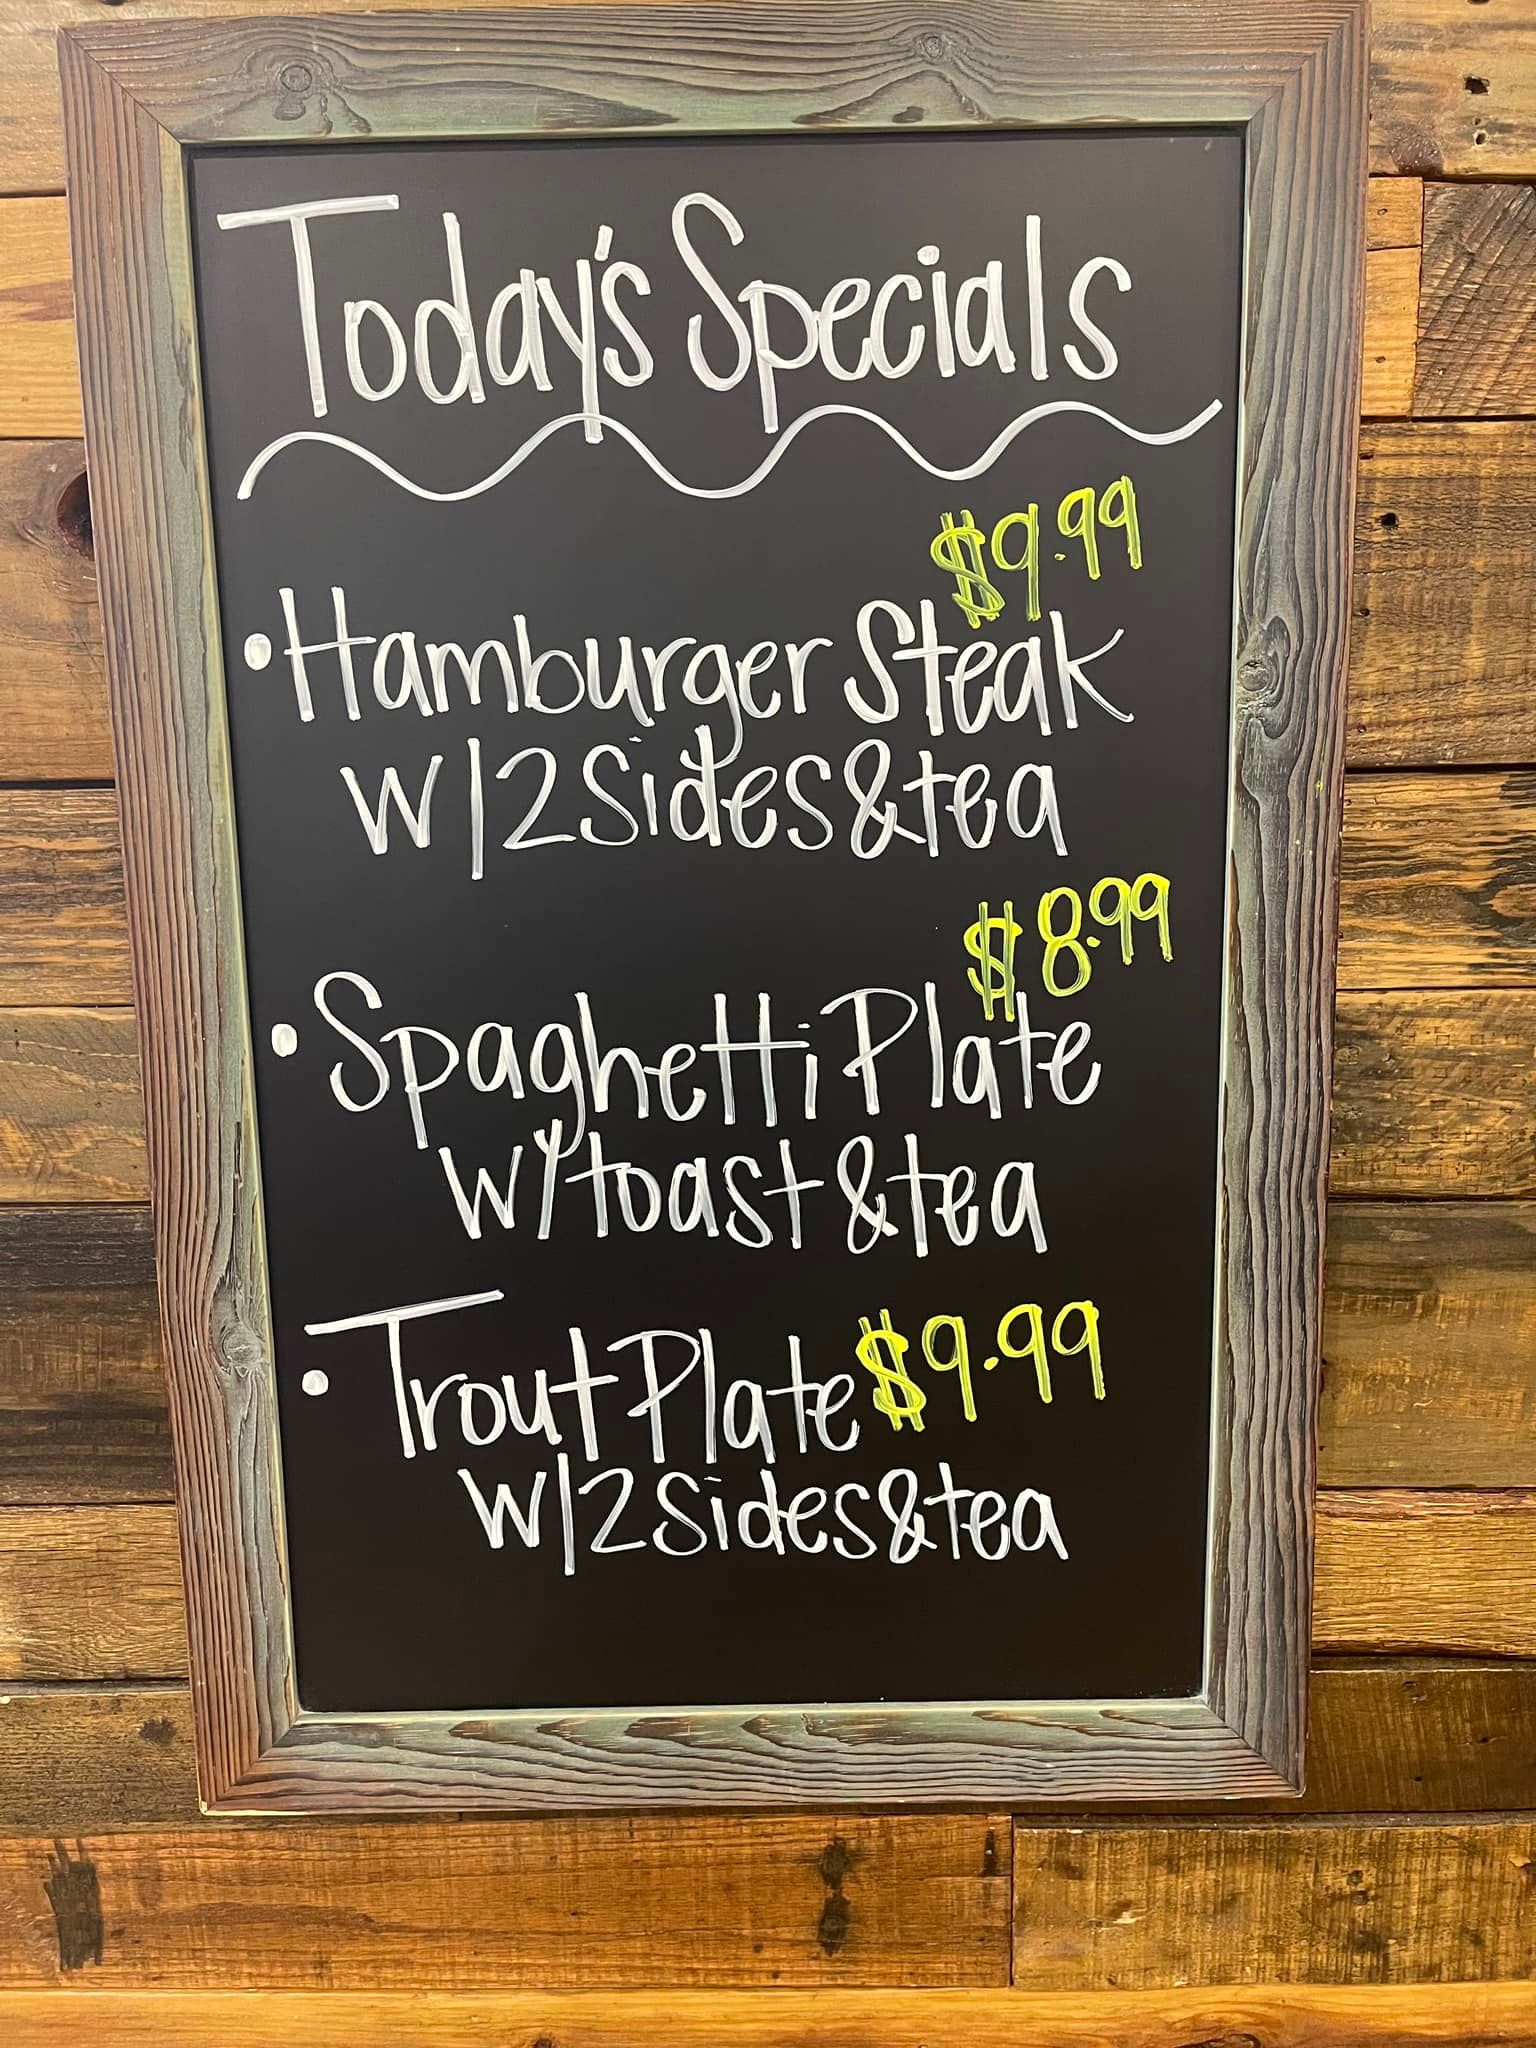 Today's Specials
$9.99
• Hamburger Steak
W/2 Sides & tea
$8.99
• Spaghetti Plate
W/toast & tea
• Trout Plate $9.99
W/2 sides & tea